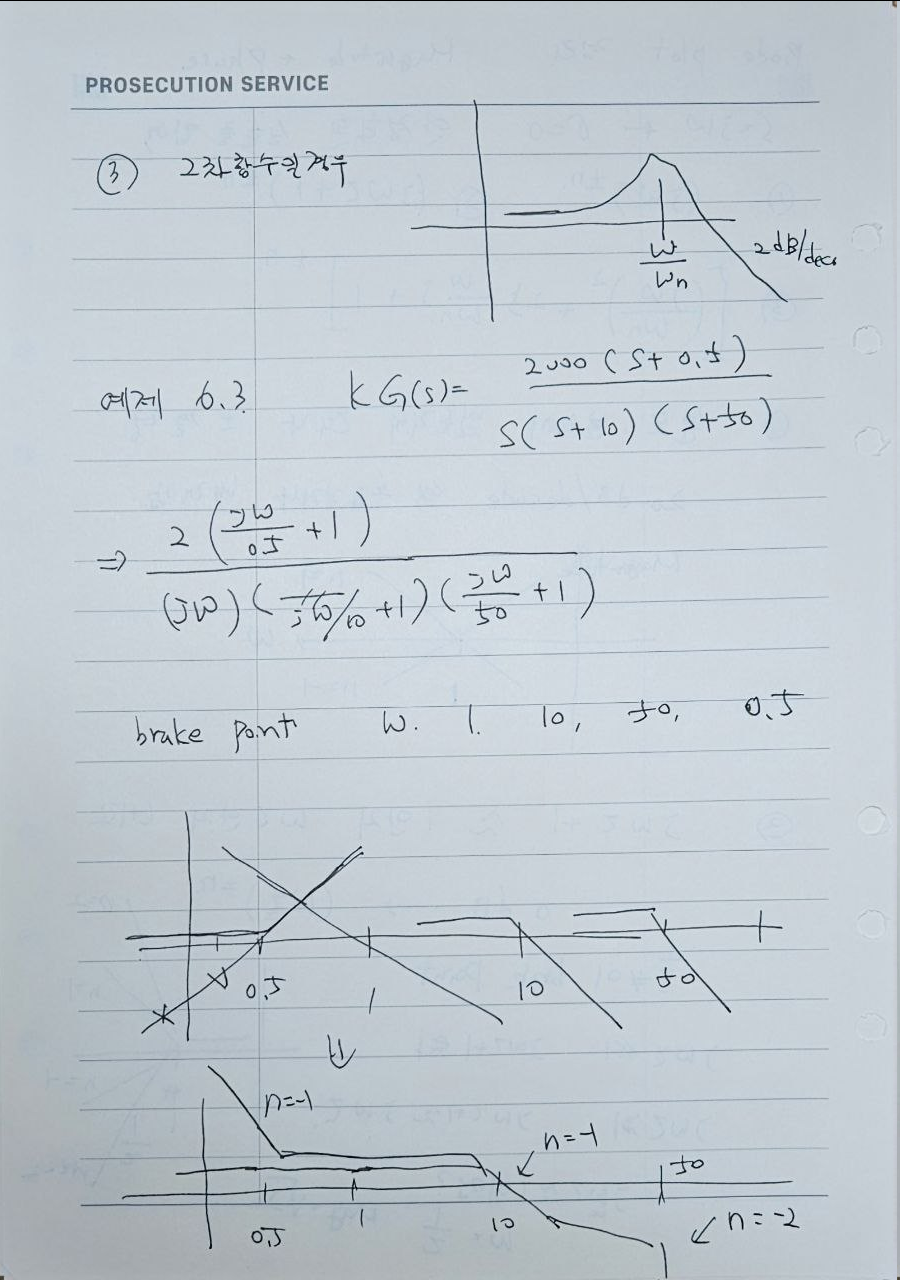 PROSECUTION SERVICE
③ 2차항수일경우
w/wn
2dB/dec
예제 6.3 KG(s)= 2000 (S+0.5) / S(S+10)(S+50)
⇒ 2 (jw/0.5 +1) / (jw)(jw/10 +1)(jw/50 +1)
brake point w. 1. 10, 50, 0.5
0.5 1 10 50
n=-1
n=-1
50
0.5 1 10
n=-2